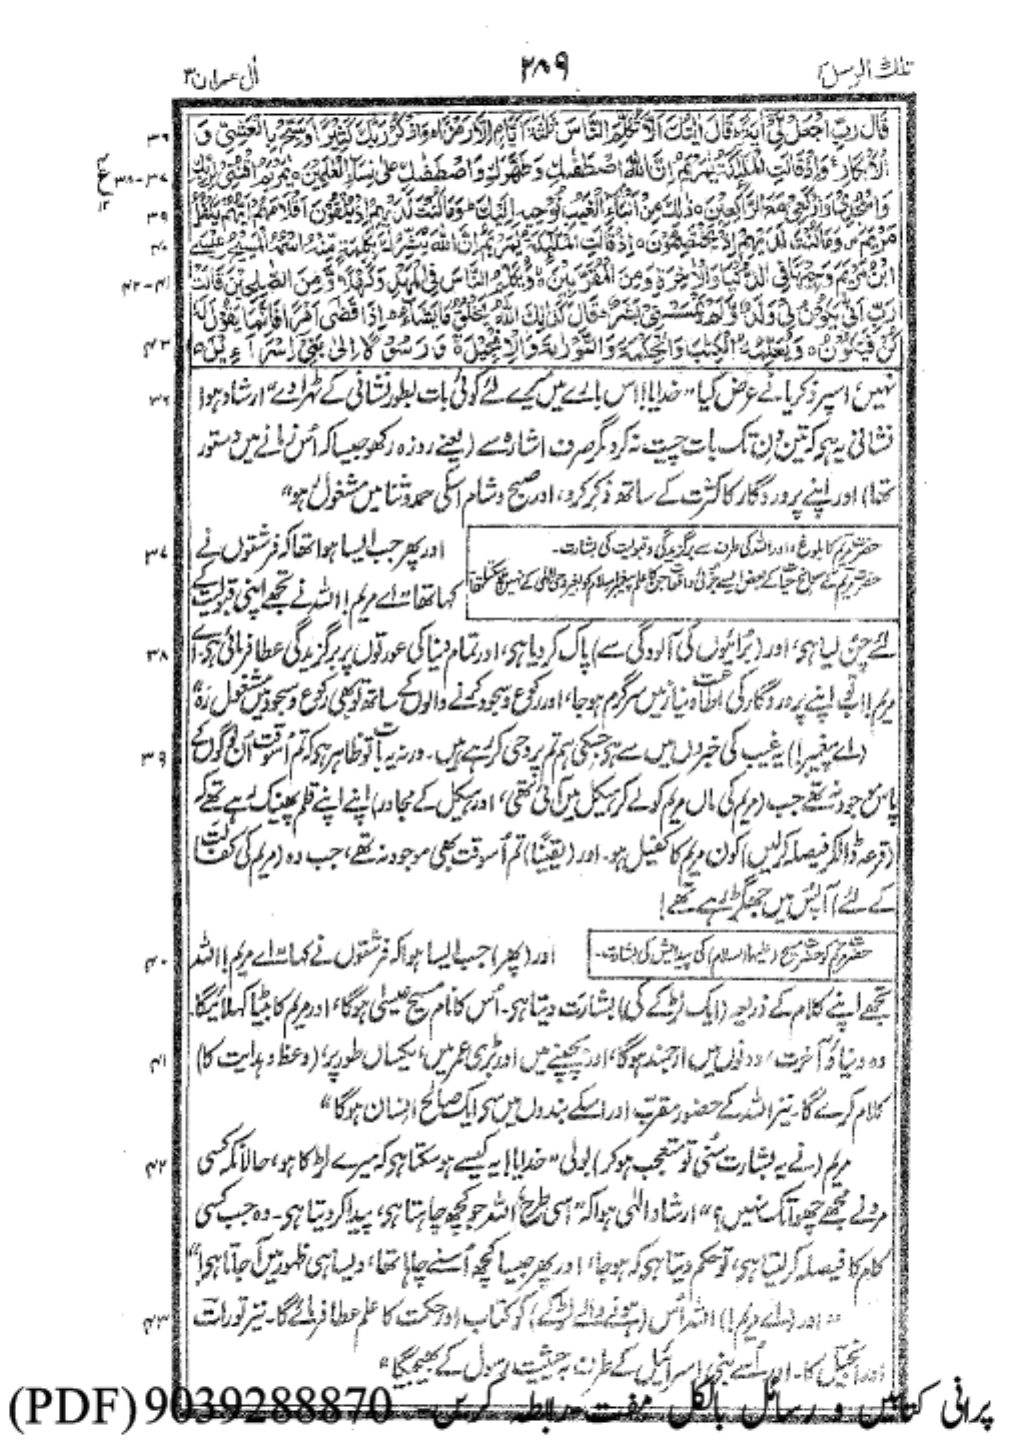 تلك الرسل ۳
۲۸۹
اٰل عمران ۳
قَالَ رَبِّ اجْعَلْ لِّیْٓ اٰیَةً ؕ قَالَ اٰیَتُكَ اَلَّا تُكَلِّمَ النَّاسَ ثَلٰثَةَ اَیَّامٍ اِلَّا رَمْزًا ؕ وَاذْكُرْ رَّبَّكَ كَثِیْرًا وَّسَبِّحْ بِالْعَشِیِّ وَ
۳۶
الْاِبْكَارِ ۠ وَاِذْ قَالَتِ الْمَلٰٓئِكَةُ یٰمَرْیَمُ اِنَّ اللّٰهَ اصْطَفٰىكِ وَطَهَّرَكِ وَاصْطَفٰىكِ عَلٰی نِسَآءِ الْعٰلَمِیْنَ ۝ یٰمَرْیَمُ اقْنُتِیْ لِرَبِّكِ
۳۷-۳۸
وَاسْجُدِیْ وَارْكَعِیْ مَعَ الرّٰكِعِیْنَ ۝ ذٰلِكَ مِنْ اَنْۢبَآءِ الْغَیْبِ نُوْحِیْهِ اِلَیْكَ ؕ وَمَا كُنْتَ لَدَیْهِمْ اِذْ یُلْقُوْنَ اَقْلَامَهُمْ اَیُّهُمْ یَكْفُلُ
۳۹
مَرْیَمَ ۪ وَمَا كُنْتَ لَدَیْهِمْ اِذْ یَخْتَصِمُوْنَ ۝ اِذْ قَالَتِ الْمَلٰٓئِكَةُ یٰمَرْیَمُ اِنَّ اللّٰهَ یُبَشِّرُكِ بِكَلِمَةٍ مِّنْهُ اسْمُهُ الْمَسِیْحُ عِیْسَی
۴۰
ابْنُ مَرْیَمَ وَجِیْهًا فِی الدُّنْیَا وَالْاٰخِرَةِ وَمِنَ الْمُقَرَّبِیْنَ ۝ وَیُكَلِّمُ النَّاسَ فِی الْمَهْدِ وَكَهْلًا وَّمِنَ الصّٰلِحِیْنَ قَالَتْ
۴۱-۴۲
رَبِّ اَنّٰی یَكُوْنُ لِیْ وَلَدٌ وَّلَمْ یَمْسَسْنِیْ بَشَرٌ ؕ قَالَ كَذٰلِكِ اللّٰهُ یَخْلُقُ مَا یَشَآءُ ؕ اِذَا قَضٰۤی اَمْرًا فَاِنَّمَا یَقُوْلُ لَهٗ
كُنْ فَیَكُوْنُ ۝ وَیُعَلِّمُهُ الْكِتٰبَ وَالْحِكْمَةَ وَالتَّوْرٰىةَ وَالْاِنْجِیْلَ ۝ وَرَسُوْلًا اِلٰی بَنِیْۤ اِسْرَآءِیْلَ
۴۳
نہیں، اسپر زکریا نے عرض کیا "خدایا! اس بارے میں میرے لئے کوئی بات بطور نشانی کے ٹھہرا دے" ارشاد ہوا
۳۶
نشانی یہ ہو کہ تین دن تک بات چیت نہ کرو مگر صرف اشارہ سے (یعنے روزہ رکھو جیسا کہ اُس زمانے میں دستور
تھا) اور اپنے پروردگار کا کثرت کے ساتھ ذکر کرو، اور صبح و شام اسکی حمد و ثنا میں مشغول ہو"
حضرت مریم کا بلوغ، اور اللہ کی طرف سے برگزیدگی و قبولیت کی بشارت۔
اور پھر جب ایسا ہوا تھا کہ فرشتوں نے
۳۷
کہا تھا "اے مریم! اللہ نے تجھے اپنی قبولیت کے
لئے چن لیا ہی، اور (برائیوں کی آلودگی سے) پاک کر دیا ہی، اور تمام دنیا کی عورتوں پر برگزیدگی عطا فرمائی ہی۔ اے
۳۸
مریم! اب تو اپنے پروردگار کی اطاعت و نیاز میں سرگرم ہو جا، اور رکوع و سجود کرنے والوں کے ساتھ تو بھی رکوع و سجود میں مشغول رہ"
(اے پیغمبر!) یہ غیب کی خبروں میں سے ہو جسکی ہم تم پر وحی کر رہے ہیں۔ ورنہ یہ بات تو ظاہر ہو کہ تم اُسوقت اُن لوگوں کے
۳۹
پاس موجود نہ تھے جب (مریم کی ماں مریم کو لے کر ہیکل میں آئی تھی، اور ہیکل کے مجاور) اپنے اپنے قلم پھینک رہے تھے کہ
(قرعہ ڈالکر فیصلہ کر لیں) کون مریم کا کفیل ہو۔ اور (یقیناً) تم اُسوقت بھی موجود نہ تھے، جب وہ (مریم کی کفالت
کے لئے) آپس میں جھگڑ رہے تھے!
حضرت مریم کو حضرت مسیح (علیہما السلام) کی پیدائش کی بشارت۔
اور (پھر) جب ایسا ہوا کہ فرشتوں نے کہا "اے مریم! اللہ
۴۰
تجھے اپنے کلام کے ذریعہ (ایک لڑکے کی) بشارت دیتا ہی۔ اُس کا نام مسیح عیسیٰ ہوگا، اور مریم کا بیٹا کہلائیگا۔
وہ دنیا و آخرت، دونوں میں ارجمند ہوگا، اور بچپنے میں اور بڑی عمر میں، یکساں طور پر، (وعظ و ہدایت کا)
۴۱
کلام کرے گا۔ نیز اللہ کے حضور مقرب اور اسکے بندوں میں سے ایک صالح انسان ہوگا"
مریم (نے یہ بشارت سُنی تو متعجب ہو کر) بولی "خدایا! یہ کیسے ہو سکتا ہی کہ میرے لڑکا ہو، حالانکہ کسی
۴۲
مرد نے مجھے چھوا تک نہیں؟" ارشاد الٰہی ہوا کہ "اسی طرح اللہ جو کچھ چاہتا ہی، پیدا کر دیتا ہی۔ وہ جب کسی
کام کا فیصلہ کر لیتا ہی، تو حکم دیتا ہی کہ ہو جا، اور پھر جیسا کچھ اُسنے چاہا تھا، ویسا ہی ظہور میں آ جاتا ہی!"
"اور (اے مریم!) اللہ اُس (ہونے والے لڑکے) کو کتاب اور حکمت کا علم عطا فرمائے گا۔ نیز تورات
۴۳
اور انجیل کا۔ اور اُسے بنی اسرائیل کے طرف بہ حیثیت رسول کے بھیجیگا"
پرانی کتابیں و رسائل بالکل مفت۔رابطہ کریں۔ 9039288870 (PDF)